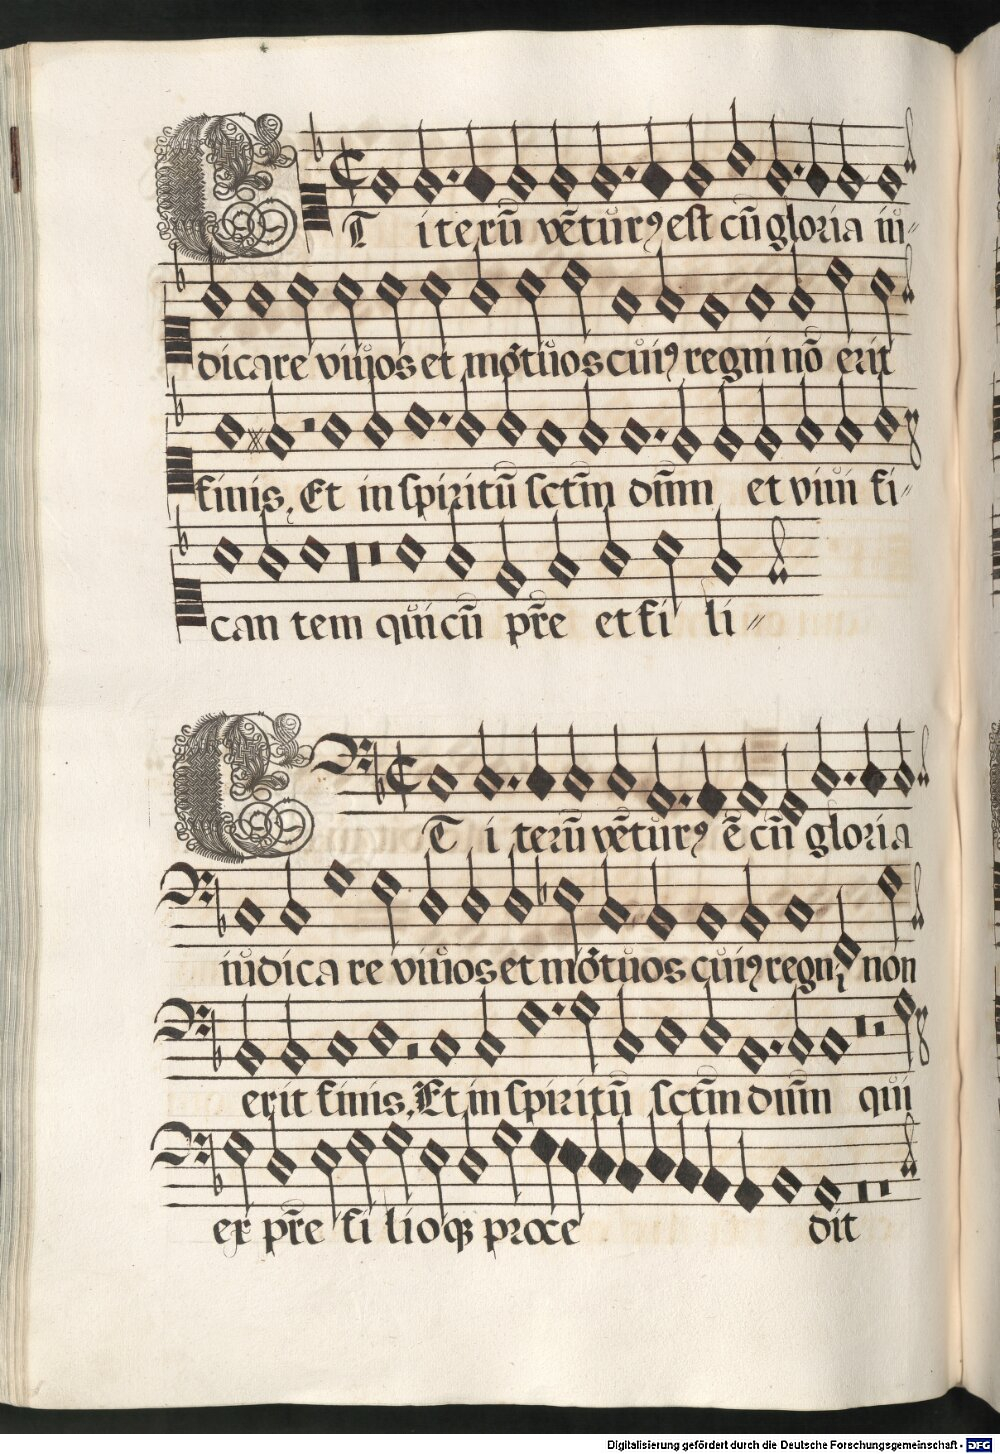 ET iterū vētur⁹ est cū gloria iu⸗
dicare viuos et mōtuos cui⁹ regni nō erit
finis, Et in spiritū sctm̄ dūm et viui fi⸗
can tem qui cū pr̄e et fi li⸗
ET i terū vētur⁹ ē cū gloria
iudica re viuos et mōtuos cui⁹ regni non
erit finis, Et in spiritū sctm̄ dūm qui
ex pr̄e fi lioq̄ proce dit
Digitalisierung gefördert durch die Deutsche Forschungsgemeinschaft - DFG